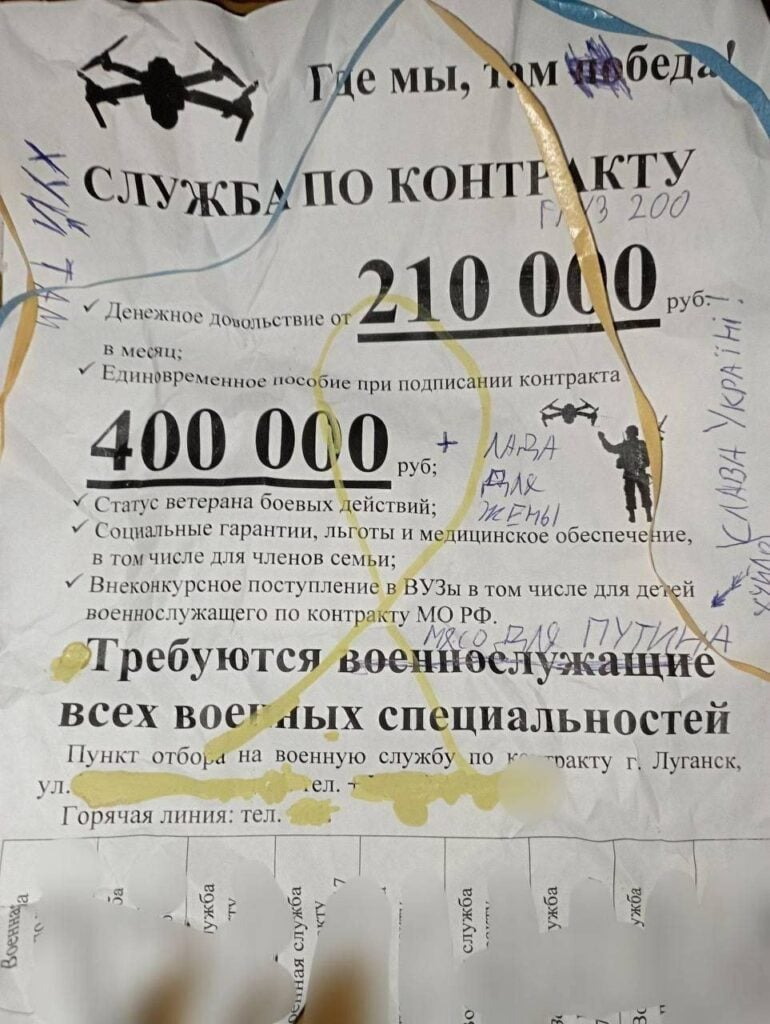 Где мы, там победа!
СЛУЖБА ПО КОНТРАКТУ
ГРУЗ 200
✓ Денежное довольствие от 210 000 руб.
в месяц;
✓ Единовременное пособие при подписании контракта
400 000 руб;
+ ЛАДА
ДЛЯ
ЖЕНЫ
✓ Статус ветерана боевых действий;
✓ Социальные гарантии, льготы и медицинское обеспечение,
в том числе для членов семьи;
✓ Внеконкурсное поступление в ВУЗы в том числе для детей
военнослужащего по контракту МО РФ.
МЯСО ДЛЯ ПУТИНА
Требуются военнослужащие
всех военных специальностей
Пункт отбора на военную службу по контракту г. Луганск,
ул. тел. +
Горячая линия: тел.
СЛАВА УКРАЇНІ!
ТАМ
Военная
ба
ужба
ту
енная служба
кту
служба
ужба
ужба